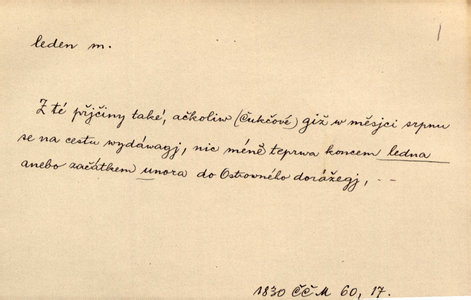 1
leden m.
Z té přjčiny také, ačkoliw (Čukčové) giž w měsjci srpnu
se na cestu wydáwagj, nic méně teprwa koncem ledna
anebo začátkem unora do Ostrovného dorážegj, --
1830 ČČM 60, 17.